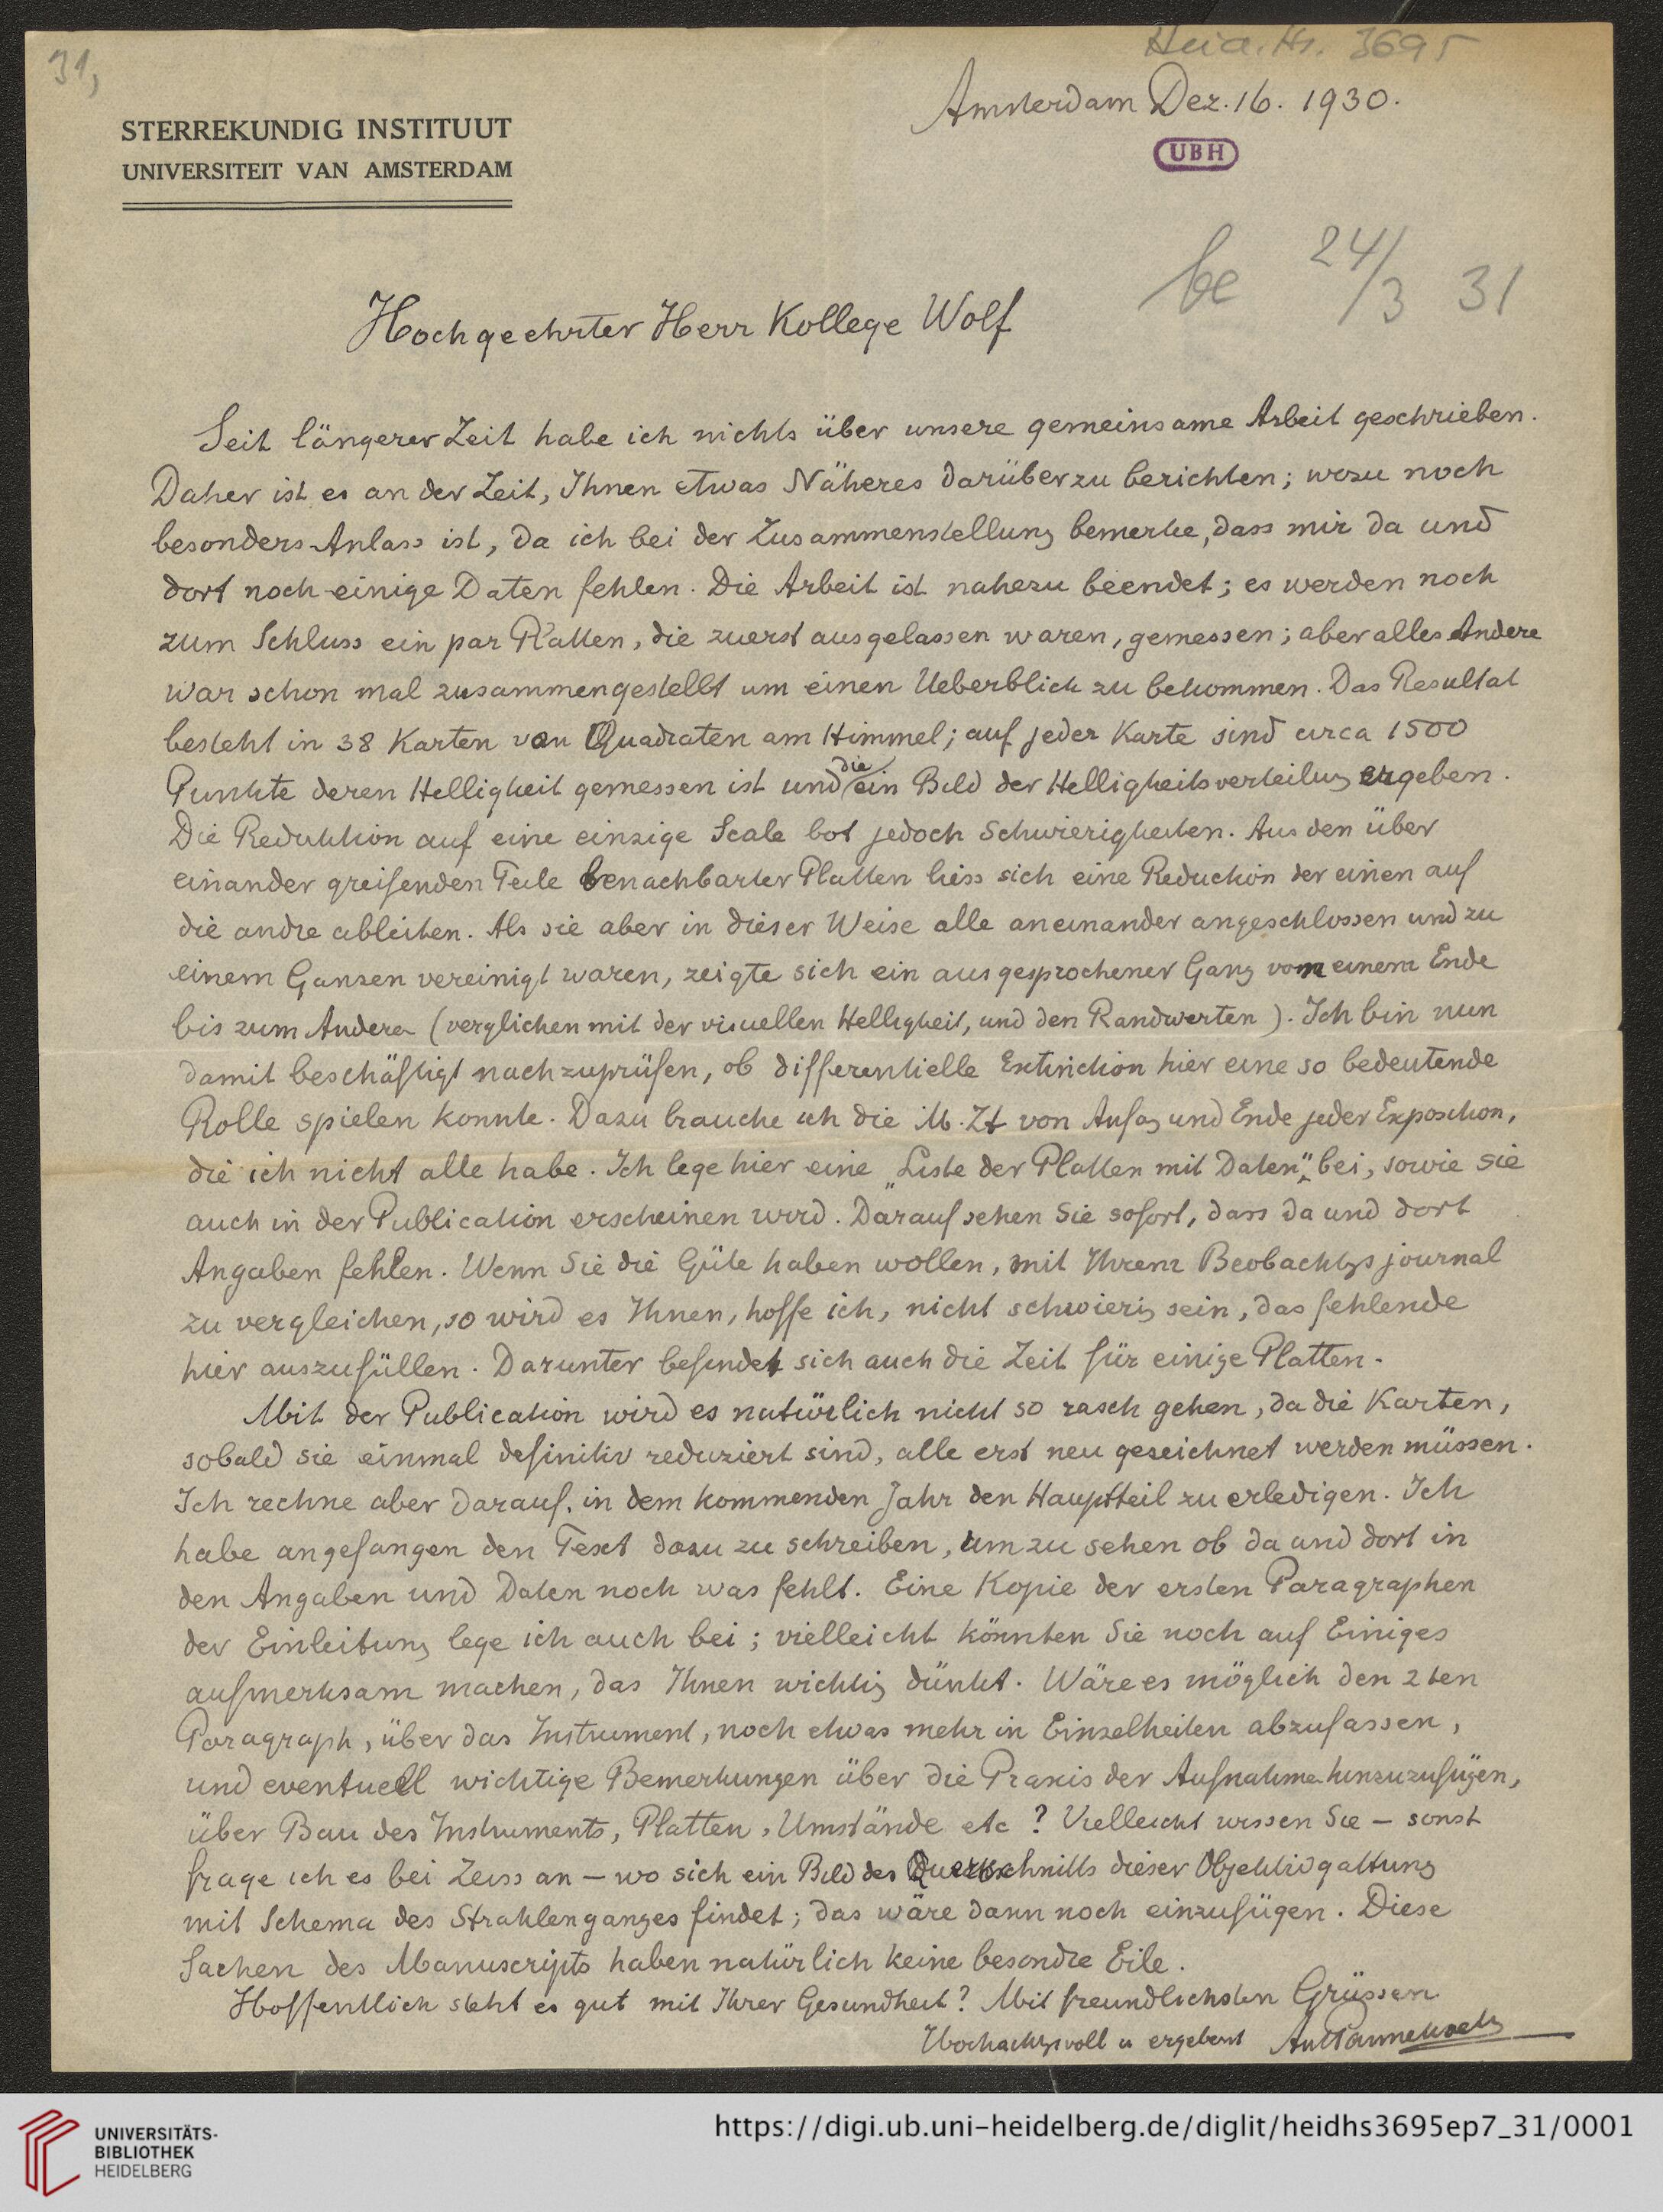 31,
Heid. Hs. 3695
Amsterdam Dez. 16. 1930.
STERREKUNDIG INSTITUUT
UNIVERSITEIT VAN AMSTERDAM
UBH
be 24/3 31
Hochgeehrter Herr Kollege Wolf
Seit längerer Zeit habe ich nichts über unsere gemeinsame Arbeit geschrieben.
Daher ist es an der Zeit, Ihnen etwas Näheres darüber zu berichten; wozu noch
besonders Anlass ist, da ich bei der Zusammenstellung bemerke, dass mir da und
dort noch einige Daten fehlen. Die Arbeit ist nahezu beendet; es werden noch
zum Schluss ein par Platten, die zuerst ausgelassen waren, gemessen; aber alles Andere
war schon mal zusammengestellt um einen Ueberblick zu bekommen. Das Resultat
besteht in 38 Karten von Quadraten am Himmel; auf jeder Karte sind circa 1500
Punkte deren Helligkeit gemessen ist und die ein Bild der Helligkeitsverteilung ergeben.
Die Reduktion auf eine einzige Scale bot jedoch Schwierigkeiten. Aus den über
einander greifenden Teile benachbarter Platten liess sich eine Reduction der einen auf
die andre ableiten. Als sie aber in dieser Weise alle aneinander angeschlossen und zu
einem Ganzen vereinigt waren, zeigte sich ein ausgesprochener Gang vom einem Ende
bis zum Andern (verglichen mit der visuellen Helligkeit, und den Randwerten). Ich bin nun
damit beschäftigt nachzuprüfen, ob differentielle Extinction hier eine so bedeutende
Rolle spielen konnte. Dazu brauche ich die M. Zt von Anfag und Ende jeder Exposition,
die ich nicht alle habe. Ich lege hier eine „Liste der Platten mit Daten" bei, sowie sie
auch in der Publication erscheinen wird. Darauf sehen Sie sofort, dass da und dort
Angaben fehlen. Wenn Sie die Güte haben wollen, mit Ihrem Beobachtgsjournal
zu vergleichen, so wird es Ihnen, hoffe ich, nicht schwierig sein, das fehlende
hier auszufüllen. Darunter befindet sich auch die Zeit für einige Platten.
Mit der Publication wird es natürlich nicht so rasch gehen, da die Karten,
sobald sie einmal definitiv reduziert sind, alle erst neu gezeichnet werden müssen.
Ich rechne aber darauf, in dem kommenden Jahr den Hauptteil zu erledigen. Ich
habe angefangen den Text dazu zu schreiben, um zu sehen ob da und dort in
den Angaben und Daten noch was fehlt. Eine Kopie der ersten Paragraphen
der Einleitung lege ich auch bei; vielleicht könnten Sie noch auf Einiges
aufmerksam machen, das Ihnen wichtig dünkt. Wäre es möglich den 2ten
Paragraph, über das Instrument, noch etwas mehr in Einzelheiten abzufassen,
und eventuell wichtige Bemerkungen über die Praxis der Aufnahme hinzuzufügen,
über Bau des Instruments, Platten, Umstände etc? Vielleicht wissen Sie – sonst
frage ich es bei Zeiss an – wo sich ein Bild des Querschnitts dieser Objektivgattung
mit Schema des Strahlenganges findet; das wäre dann noch einzufügen. Diese
Sachen des Manuscripts haben natürlich keine besondre Eile.
Hoffentlich steht es gut mit Ihrer Gesundheit? Mit freundlichsten Grüssen
Hochachtgsvoll u ergebenst Ant Pannekoek
UNIVERSITÄTS-
BIBLIOTHEK
HEIDELBERG
https://digi.ub.uni-heidelberg.de/diglit/heidhs3695ep7_31/0001